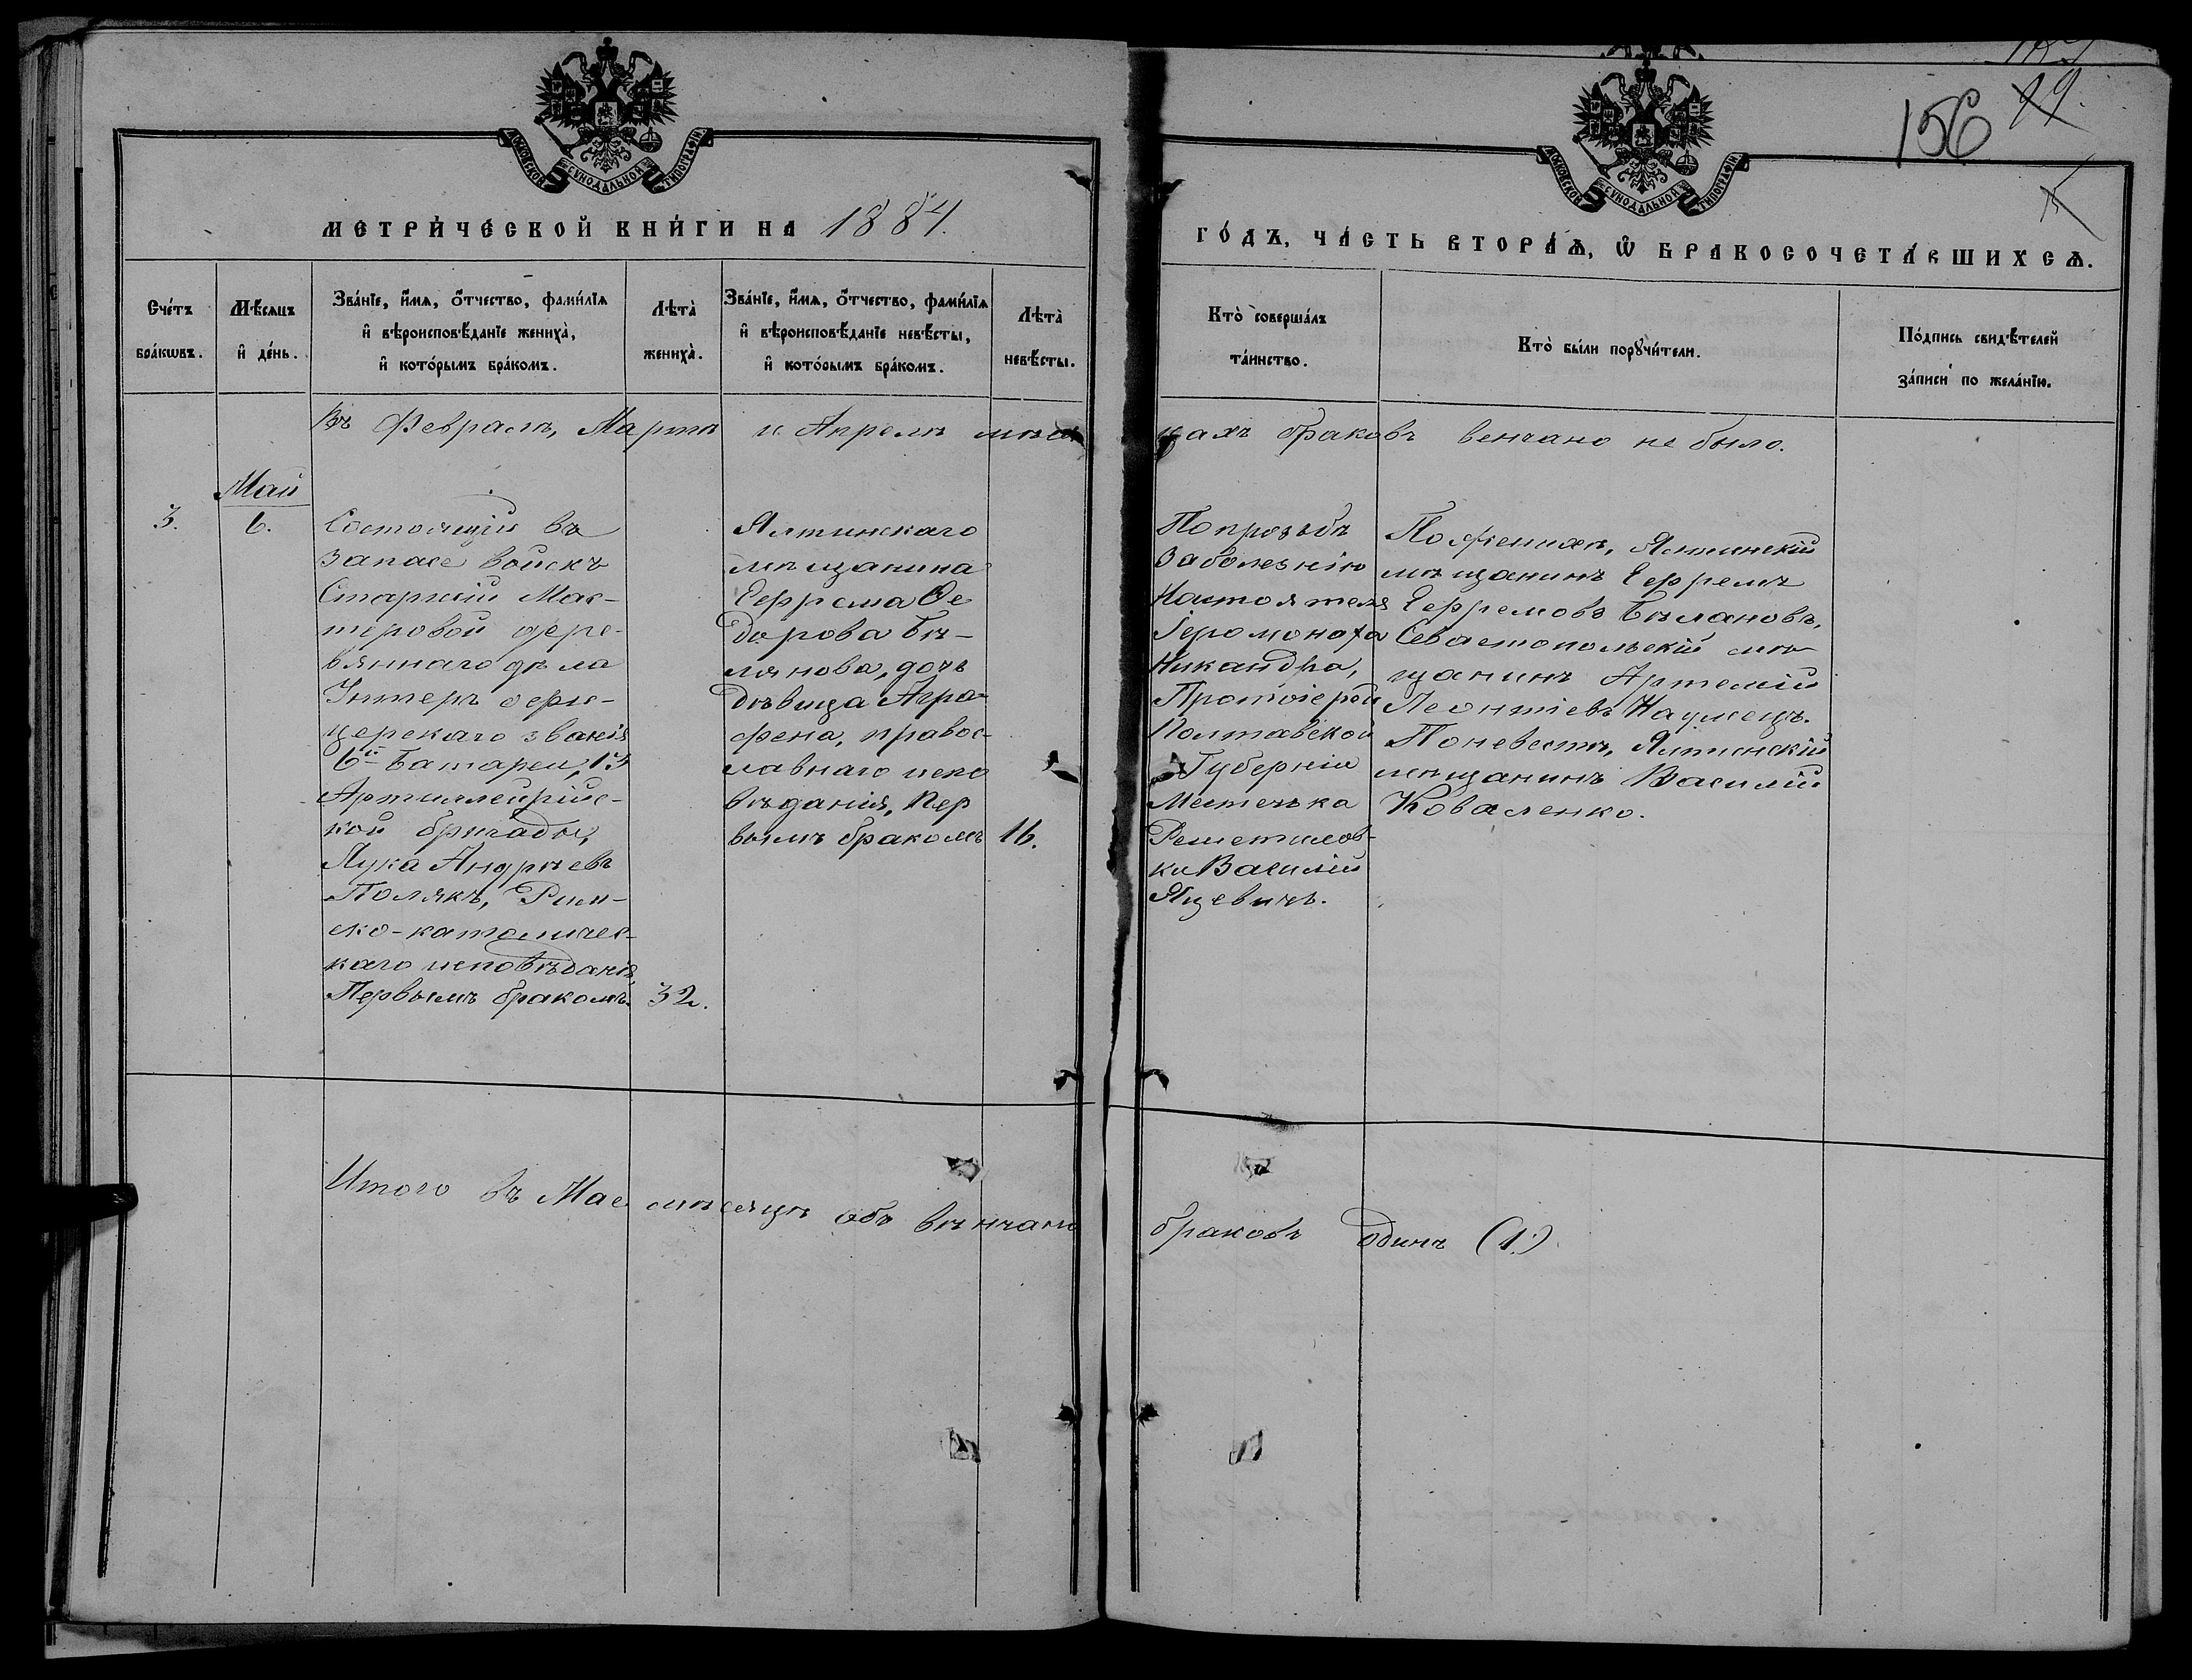 МОСКОВСКОЙ СѴНОДАЛЬНОЙ ТИПОГРАФІИ
МОСКОВСКОЙ СѴНОДАЛЬНОЙ ТИПОГРАФІИ
156
МЕТРИ́ЧЕСКОЙ КНИ́ГИ НА 1884.
ГО́ДЪ, ЧА́СТЬ ВТОРА́Ѧ, Ѡ҆ БРАКОСОЧЕТА́ВШИХСѦ.
Сче́тъ
бра́кѡвъ.
Мѣ́сяцъ
и҆ де́нь.
Зва́нїе, и҆́мя, ѻ҆́тчество, фами́лїя
и҆ вѣроисповѣ́данїе жениха̀,
и҆ кото́рымъ бра́комъ.
Лѣта̀
жениха̀.
Зва́нїе, и҆́мя, ѻ҆́тчество, фами́лїя
и҆ вѣроисповѣ́данїе невѣ́сты,
и҆ кото́рымъ бра́комъ.
Лѣта̀
невѣ́сты.
Кто̀ соверша́лъ
та́инство.
Кто̀ бы́ли порꙋчи́тели.
По́дпись свидѣ́телей
за́писи по жела́нїю.
Въ Февралѣ, Мартѣ и Апрелѣ мѣся
цахъ браковъ венчано не было.
Май
3.
6.
Состоящій въ
запасе войскъ
Старшій Мас-
теровой дере-
вяннаго дѣла
Унтеръ офи-
церскаго званія
6й Батареи, 13
Артиллейрійс-
кой бригады,
Лука Андрѣевъ
Полякъ, Рим-
ско-католичес-
каго исповѣданія,
Первымъ бракомъ.
32.
Ялтинскаго
мѣщанина
Ефрема Ѳе
дорова Бѣ-
лянова, дочь
дѣвица Агра-
фена, правос-
лавнаго испо
вѣданія, Пер
вымъ бракомъ
16.
По прозьбѣ
Заболезнію
Настоятеля
Іеромонаха
Никандра,
Протоіерей
Полтавской
Губерніи
Местечка
Решетилов-
ки Василій
Яцевичъ.
По женихѣ, Ялтинскій
мѣщанинъ Ефремъ
Ефремовъ Бѣлановъ,
Севастопольскій мѣ-
щанинъ Артемій
Леонтіевъ Наумецъ.
По невестѣ, Ялтинскій
мѣщанинъ Василій
Коваленко.
Итого въ Мае мѣсяцѣ объ вѣнчано
браковъ одинъ (1.)